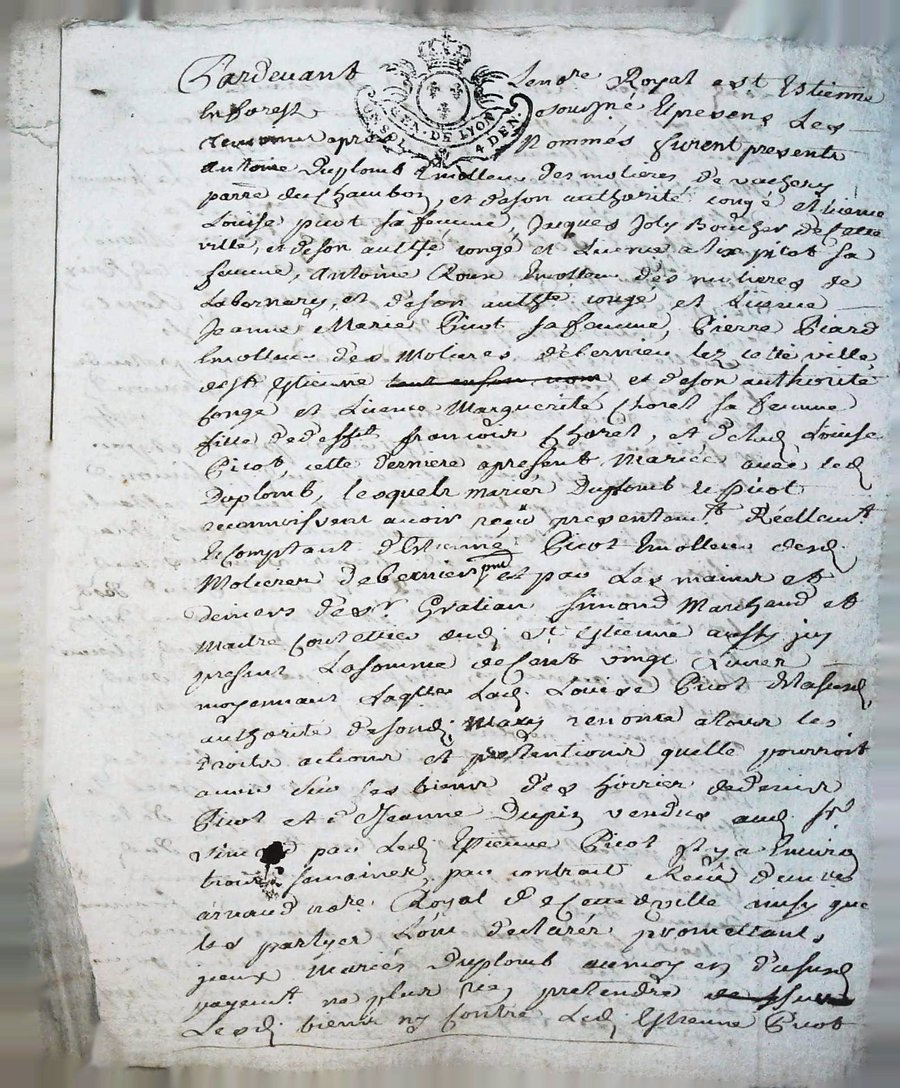 Pardevant Lenore Royal a St Estienne
en forest sousigné Et presens Les
tesmoins apres Nommés furent presents
Antoine Duplomb Emolleur des molieres de vachery
parre du Chambon, et de son authorité congé et licence
Louise picot sa femme, Jacques Joly Boucher de cette
ville, et de son autthé congé et Licence pitot sa
femme, Antoine Roux Emolleur des molieres de
Labernary, et de son autthé conge et Licence
Jeanne Marie Picot sa femme, Pierre Piard
Emolleur des Molieres debernieu lez cette ville
de St Estienne et de son authorité
Congé et Licence Marguerite Choret sa femme
fille de defft françois Choret, et de lad Louise
Picot, cette derniere apresent Mariée avec led
Duplomb, lesquels mariés Duplomb et Picot
reconnoissent avoir reçu presentemt Réellemt
Et Comptant d'Estienne Picot Emolleur desd
Molieres debernieu pnt et par Les mains et
deniers de sr Gratian Simond Marchand et
Maitre Coutellier aud St Estienne aussy icy
present La somme de Cent vingt Livres
moyennant Laqlle Lad Louise Picot de la susd
authorité de sond Mary renonce a tous les
droits actions et pretentions quelle pourroit
avoir sur les biens des hoiries de denis
Picot et de Jeanne Dupin vendus aud sr
Simond par Led Estienne Picot il y a Environ
trois semaines, par contrat Reçu dumé
arnaud nore Royal de cette ville ainsy que
les partyes L'ont declaré, promettant,
iceux Mariés Duplomb au moyen du susd
payemt ne plus rien pretendre
Lesd biens ny contre Led Estienne Picot
GEN. DE LYON
4 DEN.